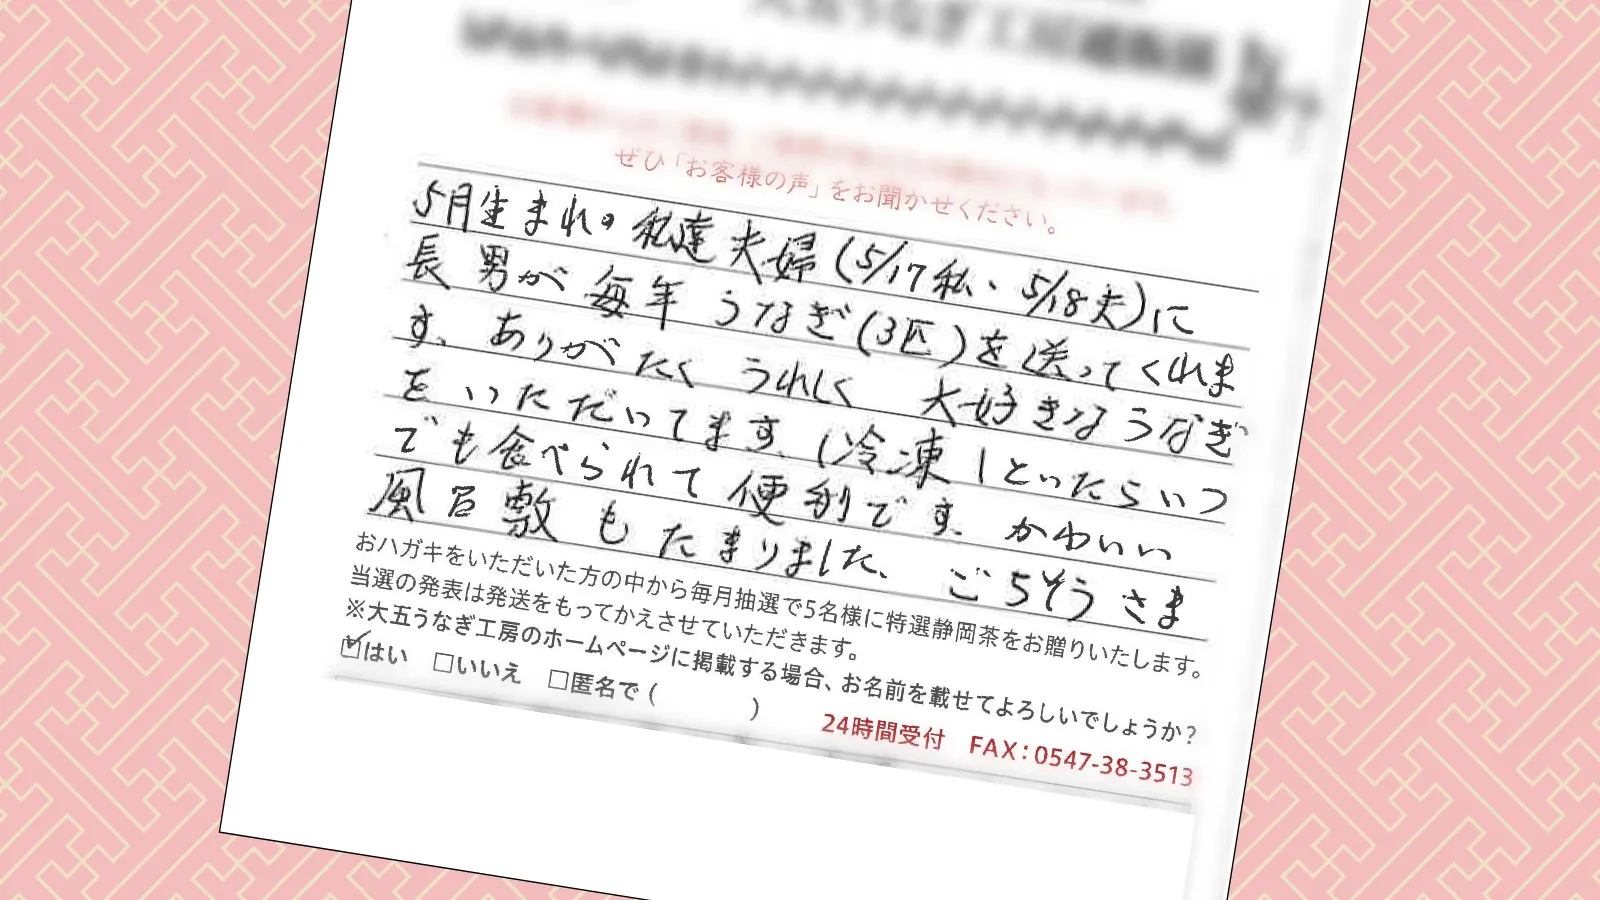 大五うなぎ工房通販部
ぜひ「お客様の声」をお聞かせください。
5月生まれの私達夫婦(5/17私、5/18夫)に
長男が毎年うなぎ(3匹)を送ってくれま
す、ありがたくうれしく 大好きなうなぎ
をいただいてます、(冷凍)といったらいつ
でも食べられて便利です、かわいい
風呂敷もたまりました、ごちそうさま
おハガキをいただいた方の中から毎月抽選で5名様に特選静岡茶をお贈りいたします。
当選の発表は発送をもってかえさせていただきます。
※大五うなぎ工房のホームページに掲載する場合、お名前を載せてよろしいでしょうか?
☑はい □いいえ □匿名で( )
24時間受付 FAX:0547-38-3513